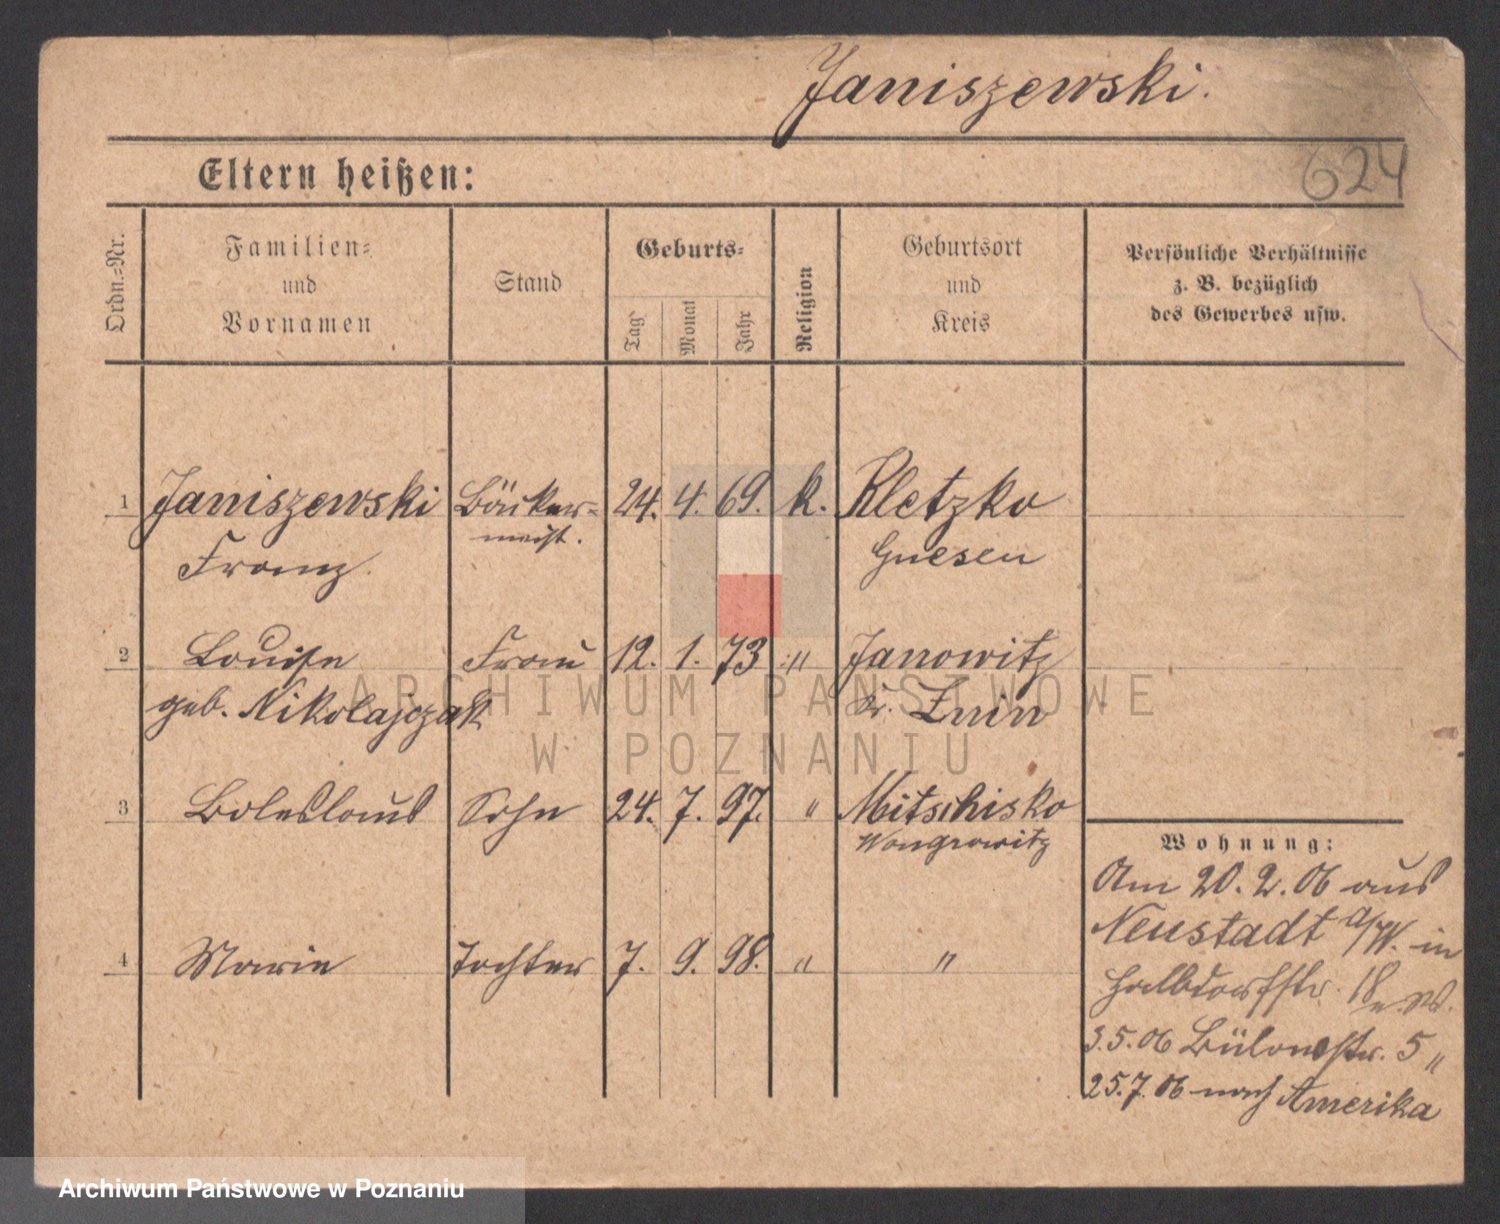 Janiszewski.
624
Eltern heißen:
Ordn.=Nr.
Familien=
und
Vornamen
Stand
Geburts=
Tag
Monat
Jahr
Religion
Geburtsort
und
Kreis
Persönliche Verhältnisse
z. B. bezüglich
des Gewerbes usw.
1 Janiszewski Bäcker= 24. 4. 69. k. Kletzko
meist.
Franz Gnesen
2 Louise Frau 12. 1. 73 " Janowitz
geb. Nikolajczak Kr. Znin
ARCHIWUM PAŃSTWOWE
W POZNANIU
3 Boleslaus Sohn 24. 7. 97. " Mitschisko
Wongrowitz
4 Marie Tochter 7. 9. 98. " "
Wohnung:
Am 20. 2. 06 aus
Neustadt a/W. in
Halbdorfstr. 18
3.5.06 Bülowstr. 5 "
25.7.06 nach Amerika
Archiwum Państwowe w Poznaniu